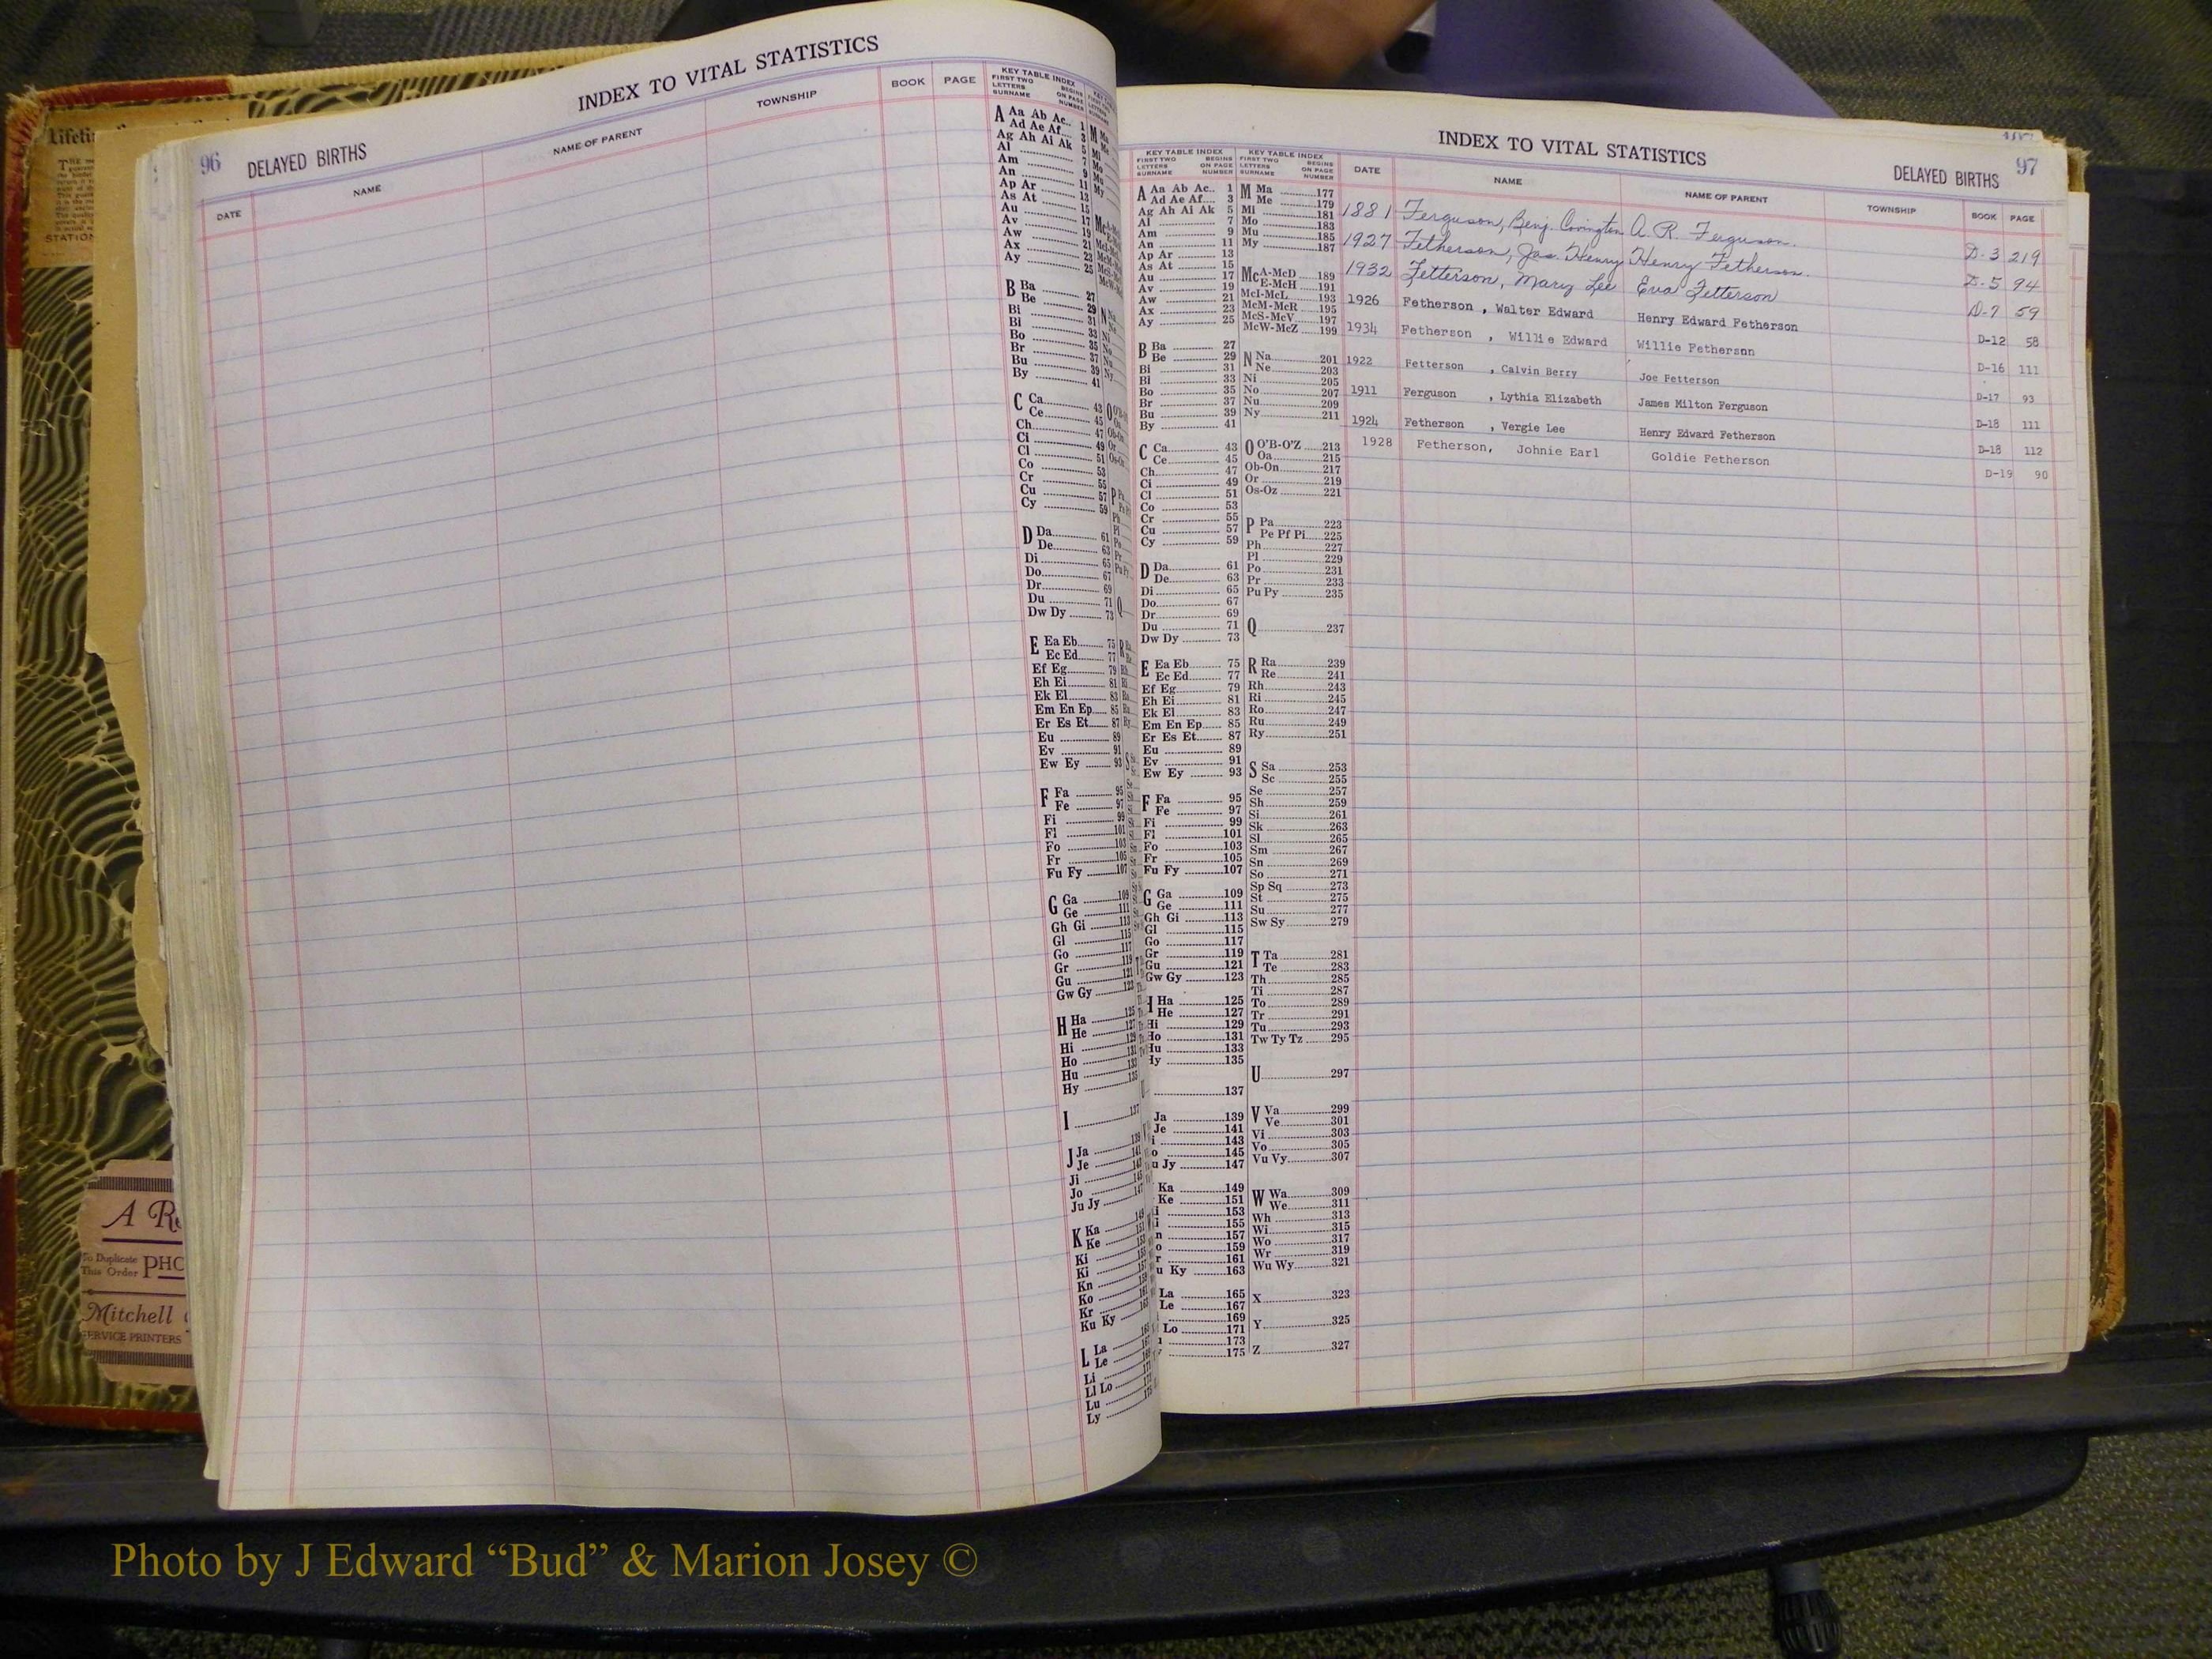 96 DELAYED BIRTHS
INDEX TO VITAL STATISTICS
DATE NAME NAME OF PARENT TOWNSHIP BOOK PAGE
KEY TABLE INDEX
FIRST TWO LETTERS SURNAME BEGINS ON PAGE NUMBER
A Aa Ab Ac.. 1
Ad Ae Af.... 3
Ag Ah Ai Ak 5
Al 7
Am 9
An 11
Ap Ar 13
As At 15
Au 17
Av 19
Aw 21
Ax 23
Ay 25
B Ba 27
Be 29
Bi 31
Bl 33
Bo 35
Br 37
Bu 39
By 41
C Ca 43
Ce 45
Ch 47
Ci 49
Cl 51
Co 53
Cr 55
Cu 57
Cy 59
D Da 61
De 63
Di 65
Do 67
Dr 69
Du 71
Dw Dy 73
E Ea Eb 75
Ec Ed 77
Ef Eg 79
Eh Ei 81
Ek El 83
Em En Ep 85
Er Es Et 87
Eu 89
Ev 91
Ew Ey 93
F Fa 95
Fe 97
Fi 99
Fl 101
Fo 103
Fr 105
Fu Fy 107
G Ga 109
Ge 111
Gh Gi 113
Gl 115
Go 117
Gr 119
Gu 121
Gw Gy 123
H Ha 125
He 127
Hi 129
Ho 131
Hu 133
Hy 135
I 137
J Ja 139
Je 141
Ji 143
Jo 145
Ju Jy 147
K Ka 149
Ke 151
Ki 153
Ki
Kn
Ko
Kr
Ku Ky
L La
Le
Li
Ll Lo
Lu
Ly
INDEX TO VITAL STATISTICS
DELAYED BIRTHS 97
KEY TABLE INDEX
FIRST TWO LETTERS SURNAME BEGINS ON PAGE NUMBER
KEY TABLE INDEX
FIRST TWO LETTERS SURNAME BEGINS ON PAGE NUMBER
DATE NAME NAME OF PARENT TOWNSHIP BOOK PAGE
1881 Ferguson, Benj. Covington A. R. Ferguson. D-3 219
1927 Fetherson, Jas. Henry Henry Fetherson. D-5 94
1932 Fetterson, Mary Lee Eva Fetterson D-7 59
1926 Fetherson , Walter Edward Henry Edward Fetherson D-12 58
1934 Fetherson , Willie Edward Willie Fetherson D-16 111
1922 Fetterson , Calvin Berry Joe Fetterson D-17 93
1911 Ferguson , Lythia Elizabeth James Milton Ferguson D-18 111
1924 Fetherson , Vergie Lee Henry Edward Fetherson D-18 112
1928 Fetherson, Johnie Earl Goldie Fetherson D-19 90
A Aa Ab Ac.. 1
Ad Ae Af.... 3
Ag Ah Ai Ak 5
Al 7
Am 9
An 11
Ap Ar 13
As At 15
Au 17
Av 19
Aw 21
Ax 23
Ay 25
B Ba 27
Be 29
Bi 31
Bl 33
Bo 35
Br 37
Bu 39
By 41
C Ca 43
Ce 45
Ch 47
Ci 49
Cl 51
Co 53
Cr 55
Cu 57
Cy 59
D Da 61
De 63
Di 65
Do 67
Dr 69
Du 71
Dw Dy 73
E Ea Eb 75
Ec Ed 77
Ef Eg 79
Eh Ei 81
Ek El 83
Em En Ep 85
Er Es Et 87
Eu 89
Ev 91
Ew Ey 93
F Fa 95
Fe 97
Fi 99
Fl 101
Fo 103
Fr 105
Fu Fy 107
G Ga 109
Ge 111
Gh Gi 113
Gl 115
Go 117
Gr 119
Gu 121
Gw Gy 123
Ha 125
He 127
Hi 129
Ho 131
Hu 133
Hy 135
137
Ja 139
Je 141
i 143
o 145
u Jy 147
Ka 149
Ke 151
i 153
i 155
n 157
o 159
r 161
u Ky 163
La 165
Le 167
169
Lo 171
173
175
M Ma 177
Me 179
Mi 181
Mo 183
Mu 185
My 187
McA-McD 189
E-McH 191
McI-McL 193
McM-McR 195
McS-McV 197
McW-McZ 199
N Na 201
Ne 203
Ni 205
No 207
Nu 209
Ny 211
O O'B-O'Z 213
Oa 215
Ob-On 217
Or 219
Os-Oz 221
P Pa 223
Pe Pf Pi 225
Ph 227
Pl 229
Po 231
Pr 233
Pu Py 235
Q 237
R Ra 239
Re 241
Rh 243
Ri 245
Ro 247
Ru 249
Ry 251
S Sa 253
Sc 255
Se 257
Sh 259
Si 261
Sk 263
Sl 265
Sm 267
Sn 269
So 271
Sp Sq 273
St 275
Su 277
Sw Sy 279
T Ta 281
Te 283
Th 285
Ti 287
To 289
Tr 291
Tu 293
Tw Ty Tz 295
U 297
V Va 299
Ve 301
Vi 303
Vo 305
Vu Vy 307
W Wa 309
We 311
Wh 313
Wi 315
Wo 317
Wr 319
Wu Wy 321
X 323
Y 325
Z 327
A Re
To Duplicate
This Order PHO
Mitchell
SERVICE PRINTERS
Photo by J Edward “Bud” & Marion Josey ©